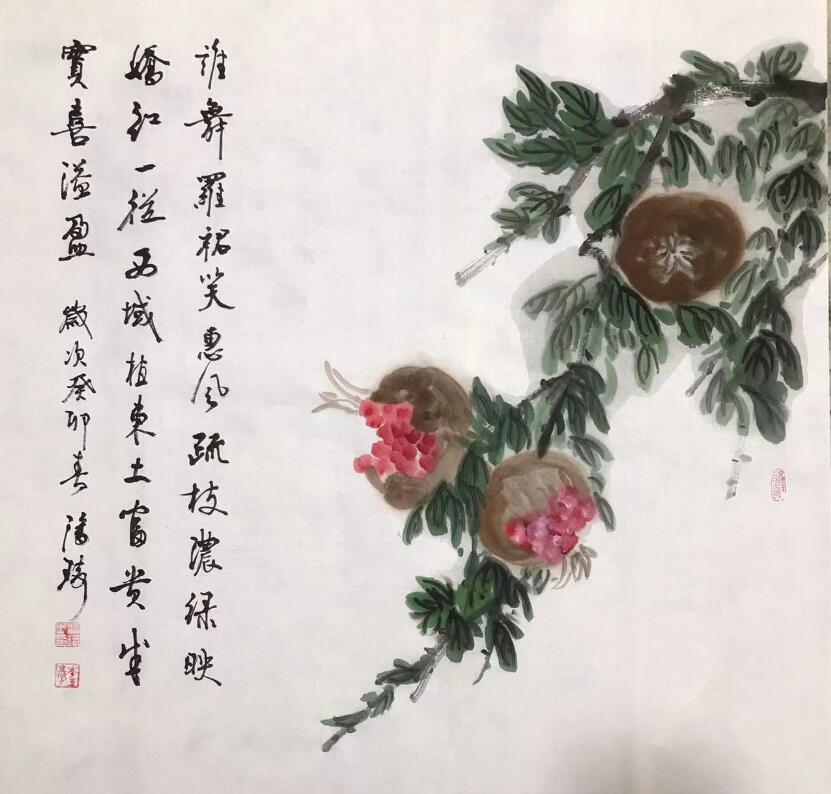 誰舞羅裙笑惠風疏枝濃绿映
嬌红一從西域植東土富贵半
寳喜溢盈
歲次癸卯春 潘琦